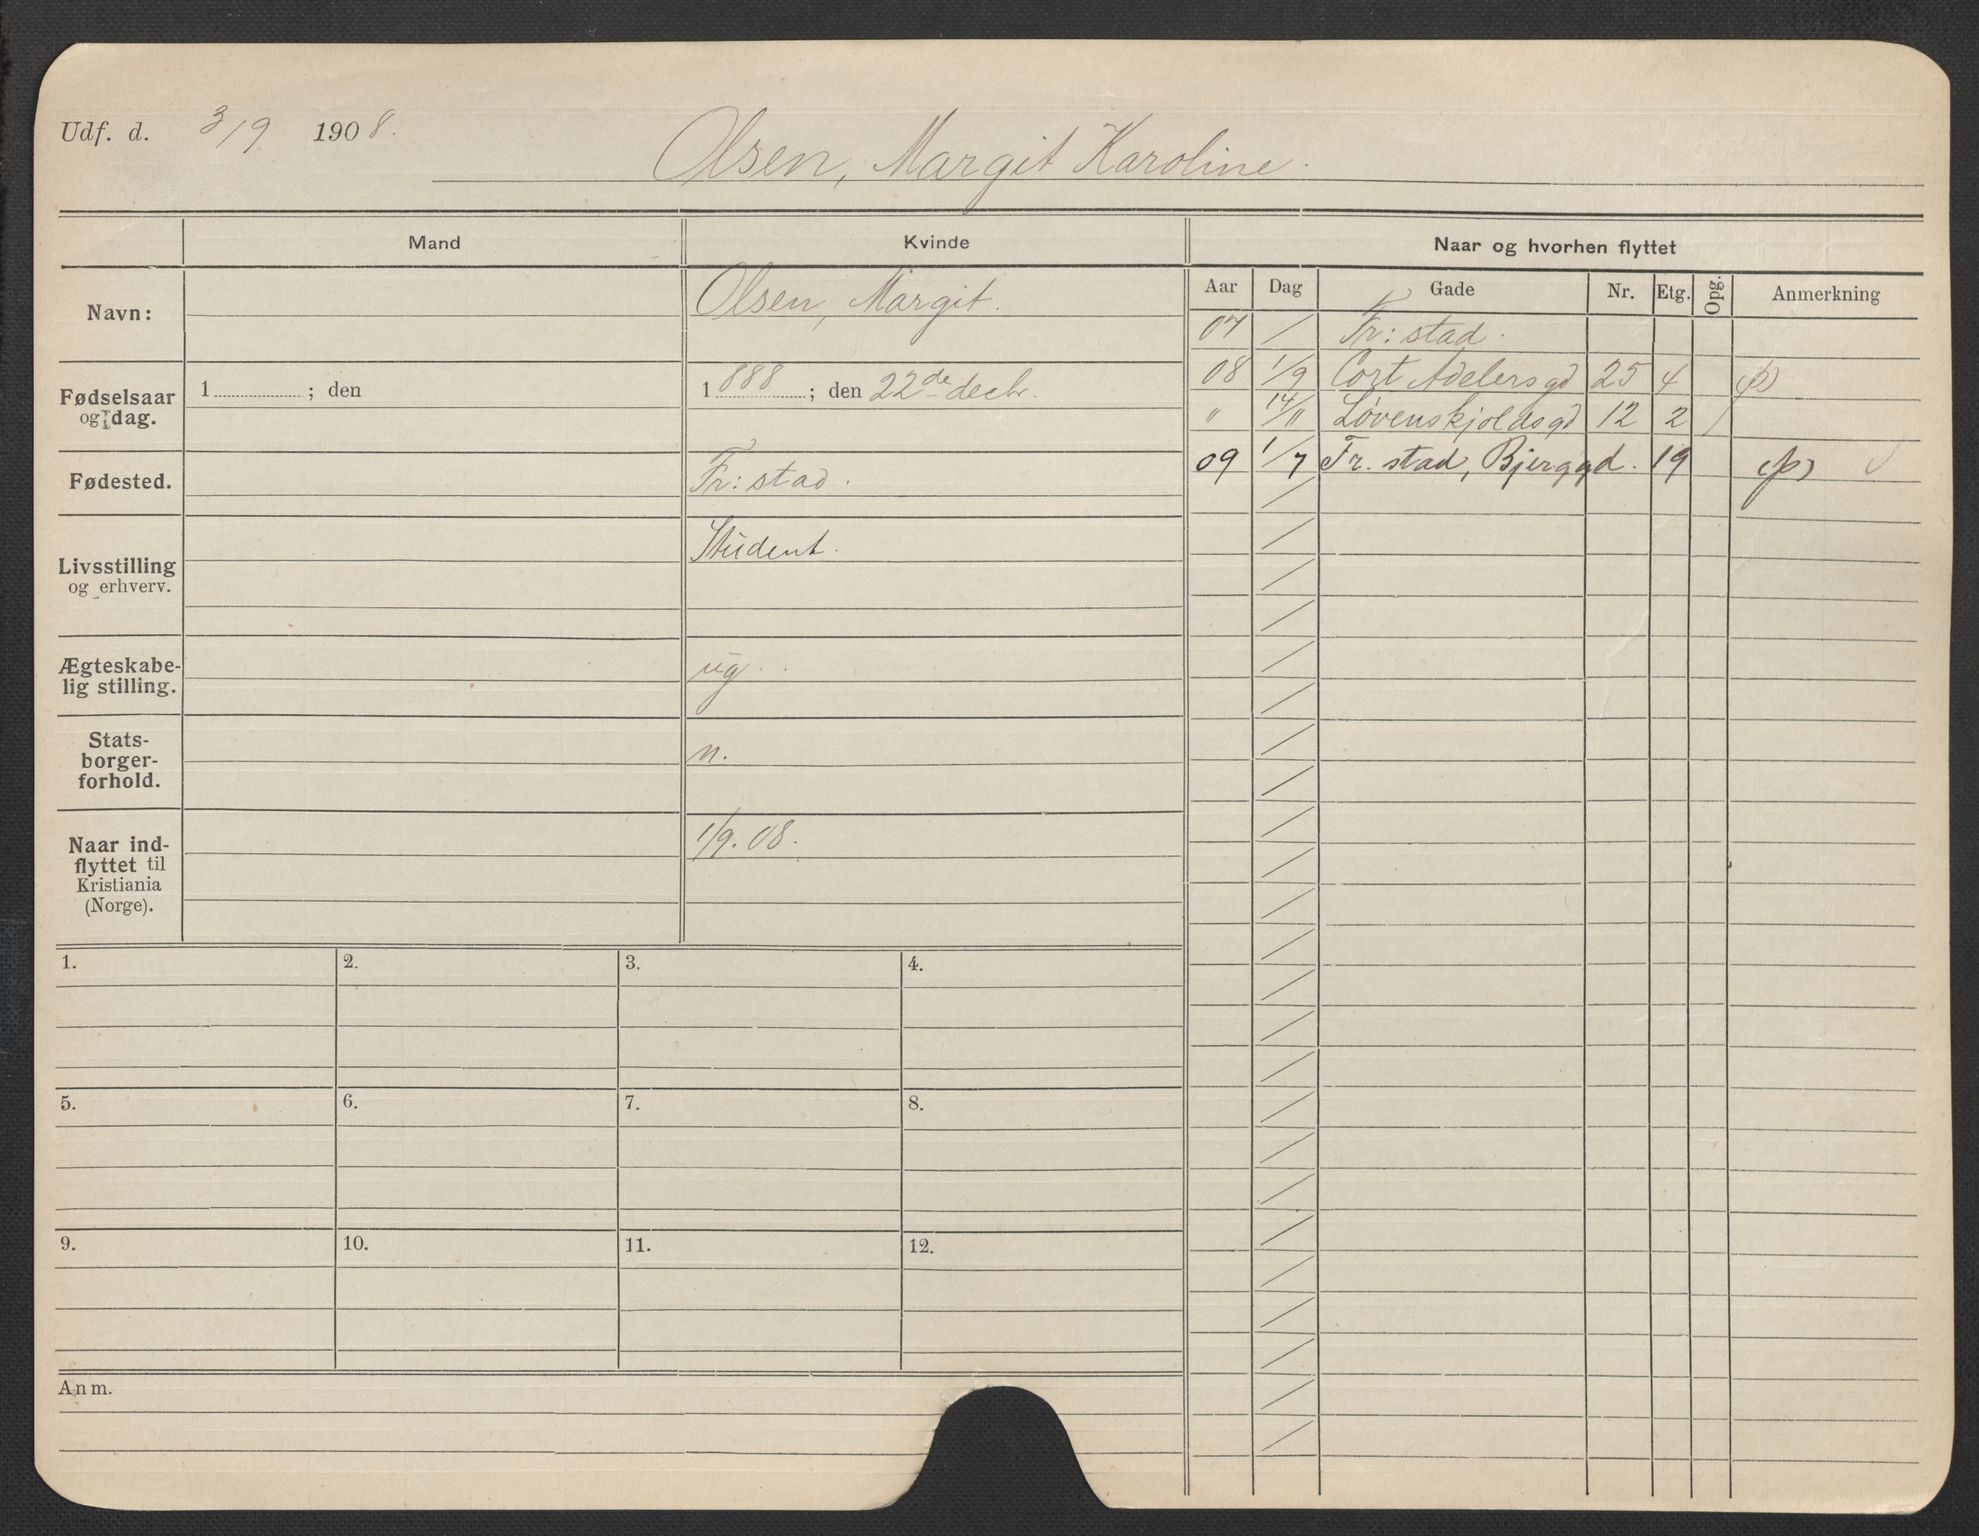 Udf. d. 3/9 1908.
Olsen, Margit Karoline.
Mand Kvinde Naar og hvorhen flyttet
Aar Dag Gade Nr. Etg. Opg. Anmerkning
Navn: Olsen, Margit.
07 / Fr: stad.
08 1/9 Cort Adelersgd 25 4 (p)
Fødselsaar og dag. 1 ; den 1888 ; den 22de decbr.
" 14/" Løvenskjoldsgd 12 2 /
09 1/7 Fr. stad, Bjerggd. 19 (p) √
Fødested. Fr: stad.
Livsstilling og erhverv. Student.
Ægteskabe-
lig stilling. ug.
Stats-
borger-
forhold. n.
Naar ind-
flyttet til
Kristiania
(Norge). 1/9. 08.
1. 2. 3. 4.
5. 6. 7. 8.
9. 10. 11. 12.
Anm.